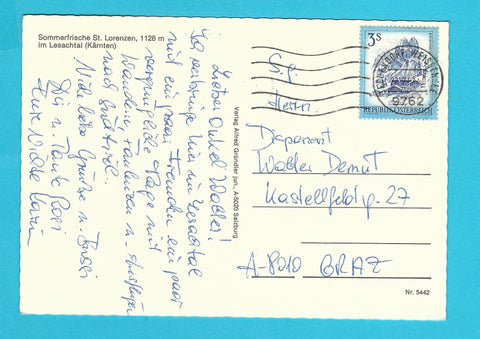 Sommerfrische St. Lorenzen, 1128 m
im Lesachtal (Kärnten)
Lieber Onkel Walter!
Ich verbringe hier im Lesachtal
mit ein paar Freunden ein paar
Tage mit
Wandern,
nach Südtirol.
Viele liebe Grüße u. Bussi
Dir u. Tante Rosi
Eure
Verlag Alfred Gründler jun., A-5020 Salzburg
3s
REPUBLIK ÖSTERREICH
9762
Herrn
Disponent
Walter Demut
Kastellfeldg. 27
A-8010 GRAZ
Nr. 5442